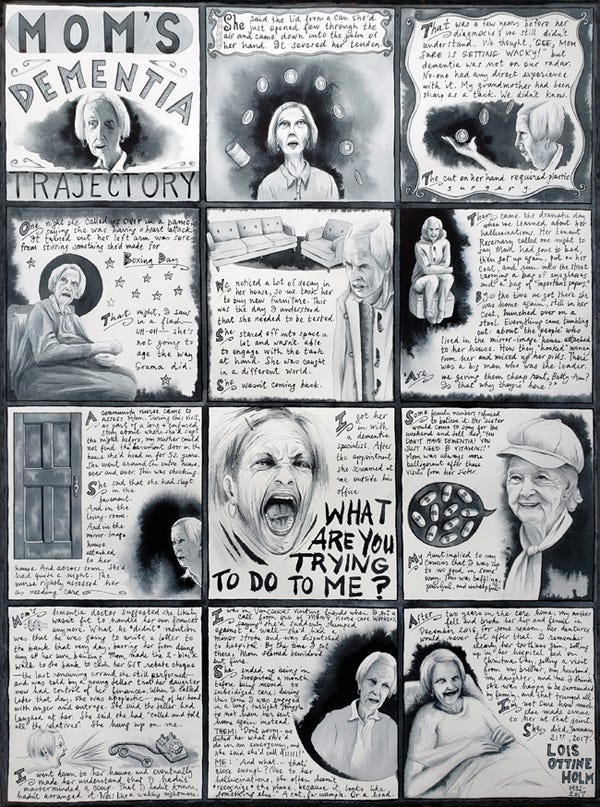 MOM'S
DEMENTIA
TRAJECTORY
She said the lid from a can she'd
just opened flew through the
air and came down into the palm of
her hand. It severed her tendon
That was a few years before her
diagnosis & we still didn't
understand. We thought, "GEE, MOM
SURE IS GETTING WACKY!" but
dementia was not on our radar.
No-one had any direct experience
with it. My grandmother had been
sharp as a tack. We didn't know.
The cut on her hand required plastic
surgery.
One night she called us over in a panic,
saying she was having a heart attack.
It turned out her left arm was sore
from stirring something she'd made for
Boxing Day
That night, I saw
in a flash—
uh-oh— she's
not going to
age the way
Grama did.
We noticed a lot of decay in
her house, so we took her
to buy new furniture. This
was the day I understood
that she needed to be tested.
She stared off into space a
lot and wasn't able
to engage with the task
at hand. She was caught
in a different world.
She wasn't coming back.
There came the dramatic day
when we learned about her
hallucinations. Her tenant
Rosemary called one night to
say Mom had gone to bed,
then got up again, put on her
coat, and run into the street
carrying a bag of
and a bag of "important papers."
By the time we got there she
was home again, still in her
coat, hunched over on a
stool. Everything came tumbling
out: about the "people" who
lived in the mirror-image house attached
to her house. How they "hooked" money
from her and mixed up her pills. There
was a big man who was the leader.
"Are we giving them cheap rent, Betty Ann?
Is that why they're here?"
A community nurse came to
assess Mom. During this visit,
as part of a long & confused
story about where she'd slept
the night before, my mother could
not find the basement door in the
house she'd lived in for 52 years.
She went around the entire house,
over and over. This was shocking.
She said that she had slept
in the
basement.
And in the
living-room.
And in the
mirror-image
house
attached
to her
house. And across town. She'd
had quite a night. The
nurse rightly assessed her
as needing care
I got her
in with
a dementia
specialist. After
the appointment
she screamed at
me outside his
office
WHAT
ARE YOU
TRYING
TO DO TO ME?
Some family members refused
to believe it. Her sister
would come to stay for the
weekend and tell her, "YOU
DON'T HAVE DEMENTIA! YOU
JUST NEED B VITAMINS!"
Mom was always more
belligerent after these
visits from her sister.
My Aunt implied to my
cousins that I was up
to no good in some
way. This was baffling,
painful, and
Mom's dementia doctor suggested she likely
wasn't fit to handle her own finances
anymore. What he didn't mention
was that he was going to write a letter to
the bank that very day, barring her from doing
her own banking. Mom made the 2-block
walk to the bank to cash her GST rebate cheque
—the last remaining errand she still performed—
and was told by a young teller that her daughter
now had control of her finances. When I called
later that day, she was apoplectic – out of her mind
with anger and outrage. She said the teller had
laughed at her. She said she had "called and told
all the relatives". She hung up on me
I went down to her house and eventually
made her understand that I hadn't
masterminded a coup. That I hadn't known,
hadn't arranged it. It was like a waking nightmare
I was in Vancouver visiting friends when I got a
call from one of Mom's home care workers,
saying she'd suddenly slumped
against a wall – she'd had a
minor stroke and was dispatched
to hospital. By the time I got
there, Mom seemed
but fine.
She ended up being in
hospital a month
before being moved into
subsidized care, during
that time I was engaged
in a long, uphill struggle
to not have her sent
home again instead.
THEM: "Don't worry – we
asked her what she'd
do in an emergency, and
she said she'd call 911!!!"
ME: And what... that's
good enough? (Due to her
hallucinations, she doesn't
recognize the phone, because it looks like
something else: A cat, for example. Or a head.
After two years in the care home, my mother
fell and broke her hip and femur in
December 2016. For some reason her dentures
would never fit after that. I remember
clearly her toothless grin, lolling
in her hospital bed on
Christmas Day, after a visit
from my brother, my husband
my daughter, and me. I think
she was happy to be surrounded
by family, and that trumped all.
I'm not sure how much
else made sense
to her at that point.
She died January
21st, 2017.
LOIS
OTTINE
HOLM
1932-
2017